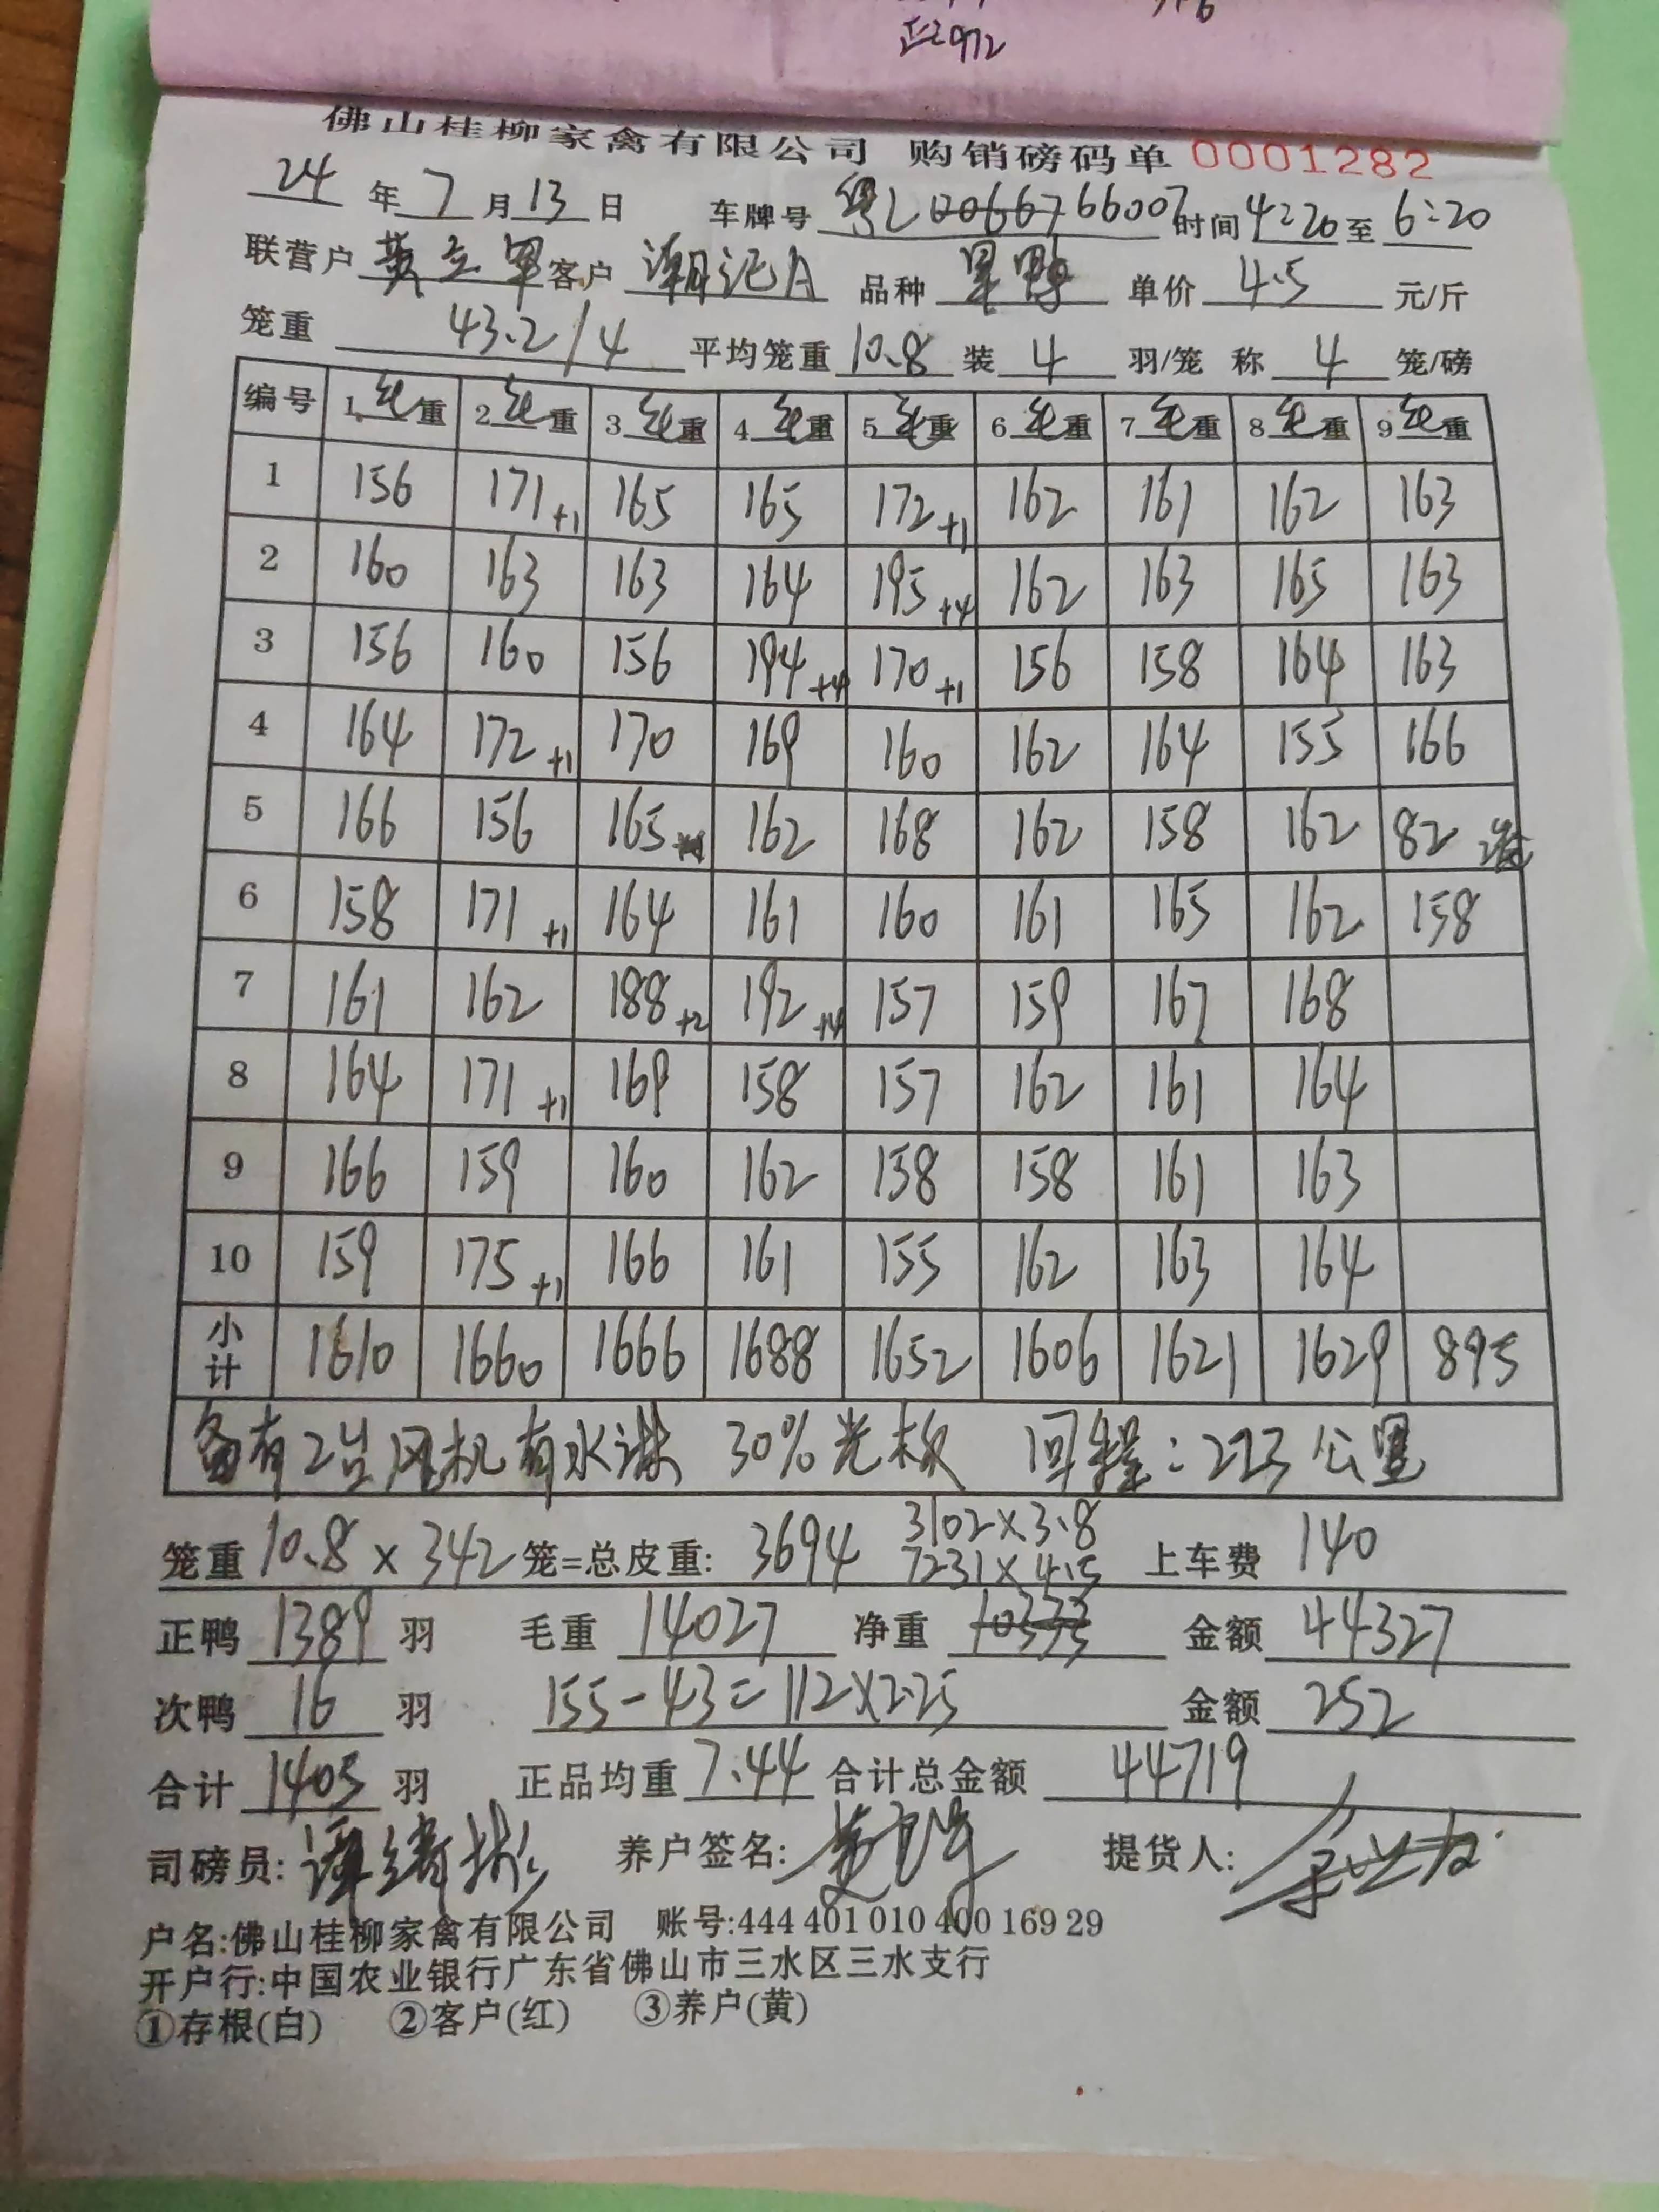 正2972
佛山桂柳家禽有限公司 购销磅码单 0001282
24 年 7 月 13 日 车牌号 粤L 66007 时间 4:20 至 6:20
联营户 黄立军 客户 潮记A 品种 单价 4.5 元/斤
笼重 43.2/4 平均笼重 10.8 装 4 羽/笼 称 4 笼/磅
编号 1 毛重 2 毛重 3 毛重 4 毛重 5 毛重 6 毛重 7 毛重 8 毛重 9 毛重
1 156 171+1 165 165 172+1 162 161 162 163
2 160 163 163 164 195+4 162 163 165 163
3 156 160 156 194+4 170+1 156 158 164 163
4 164 172+1 170 169 160 162 164 155 166
5 166 156 165 162 168 162 158 162 82
6 158 171+1 164 161 160 161 165 162 158
7 161 162 188+2 192+4 157 159 167 168
8 164 171+1 169 158 157 162 161 164
9 166 159 160 162 158 158 161 163
10 159 175+1 166 161 155 162 163 164
小计 1610 1660 1666 1688 1652 1606 1621 1629 895
备有2台风机有水淋 30%光板 回程:223公里
3102×3.8
笼重 10.8 × 342 笼=总皮重: 3694 7231×4.5 上车费 140
正鸭 1389 羽 毛重 14027 净重 10333 金额 44327
次鸭 16 羽 155-43=112×2.25 金额 252
合计 1405 羽 正品均重 7.44 合计总金额 44719
司磅员: 养户签名: 提货人:
户名:佛山桂柳家禽有限公司 账号:444 401 010 400 169 29
开户行:中国农业银行广东省佛山市三水区三水支行
①存根(白) ②客户(红) ③养户(黄)